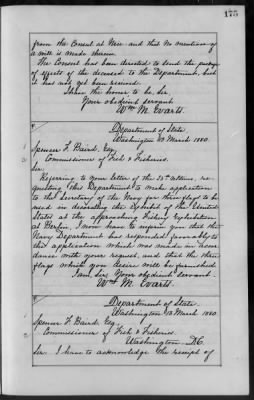 175
from the Consul at Nice and that no mention of
a will is made therein.
The Consul has been directed to send the
of effects of the deceased to the Department, but
it has not yet been received.
I have the honor to be, Sir,
Your obedient servant
Wm M. Evarts.
Department of State
Washington March 1880.
Spencer F. Baird, Esq.
Commissioner of Fish & Fisheries.
Sir:
Referring to your letter of the 25th ultimo, re-
questing this Department to make application
to the Secretary of the Navy for three flags to be
used in decorating the exhibit of the United
States at the approaching Fishery Exhibition
at Berlin, I now have to inform you that the
Navy Department has responded favorably to
this application which was made in accor
dance with your request, and that the three
flags which you desire will be furnished.
I am, Sir, Your obedient servant.
Wm M. Evarts.
Department of State.
Washington, March 1880
Spencer F. Baird, Esq.
Commissioner of Fish & Fisheries
Washington D.C.
Sir: I have to acknowledge the receipt of